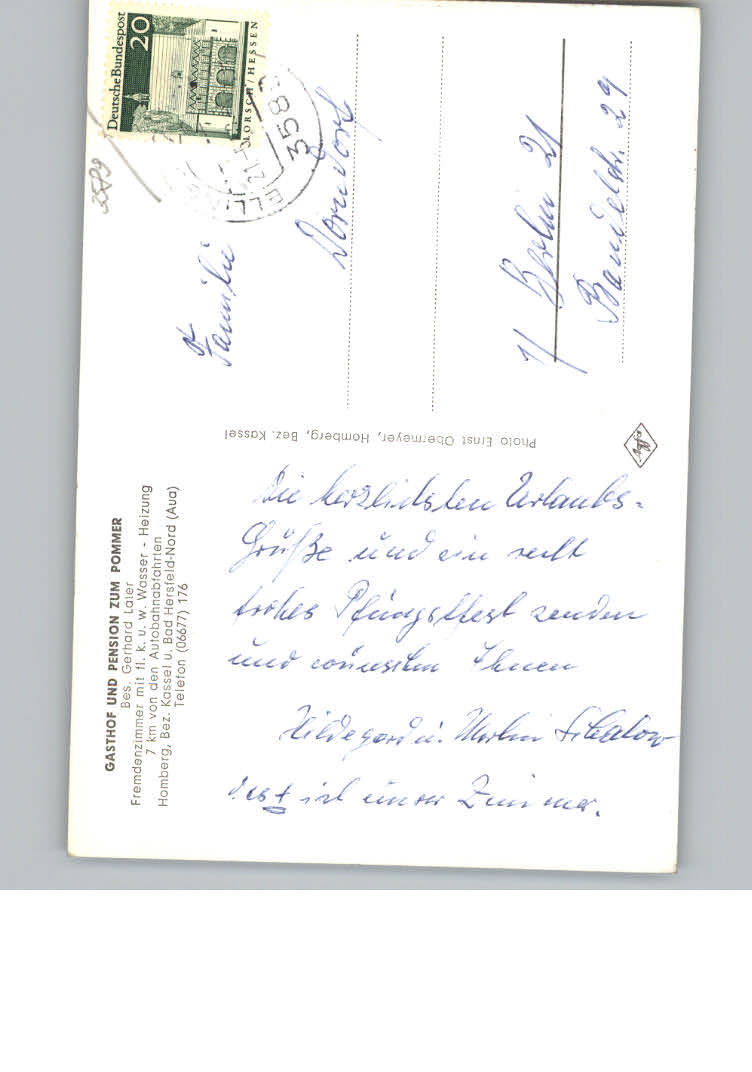 GASTHOF UND PENSION ZUM POMMER
Bes. Gerhard Laier
Fremdenzimmer mit fl. k. u. w. Wasser - Heizung
7 km von den Autobahnabfahrten
Homberg, Bez. Kassel u. Bad Hersfeld-Nord (Aua)
Telefon (06677) 176
Die herzlichsten Urlaubs-
Grüße und ein recht
frohes Pfingstfest senden
und wünschen Ihnen
Hildegard u. Martin
Das + ist unser Zimmer.
Photo Ernst Obermeyer, Homberg, Bez. Kassel
Agfa
Deutsche Bundespost
20
LORSCH/HESSEN
358
3579
Familie
Dorndorf
1/ Berlin 21
Bandelstr. 29